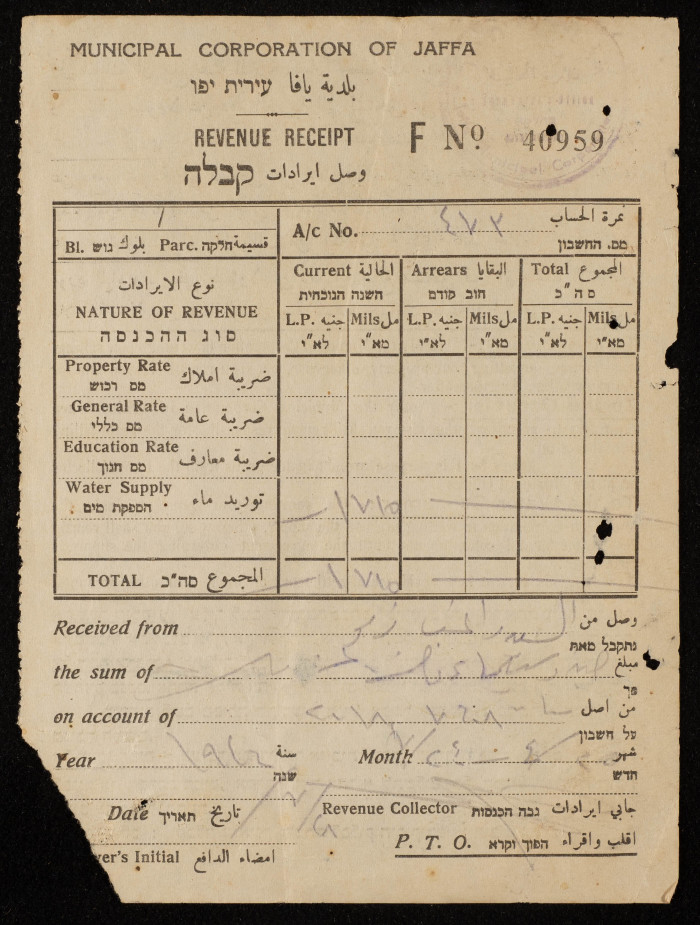 MUNICIPAL CORPORATION OF JAFFA
بلدية يافا עירית יפו
REVENUE RECEIPT F Nº 40959
وصل ايرادات קבלה
A/c No. ٤٧٣ نمرة الحساب
מס. החשבון
Bl. גוש بلوك Parc. חלקה قسيمة
Current الحالية Arrears البقايا Total المجموع
השנה הנוכחית חוב קודם סה"כ
نوع الايرادات
NATURE OF REVENUE
סוג ההכנסה
L.P. جنيه Mils مل L.P. جنيه Mils مل L.P. جنيه Mils مل
לא"י מא"י לא"י מא"י לא"י מא"י
Property Rate ضريبة املاك
מס רכוש
General Rate ضريبة عامة
מס כללי
Education Rate ضريبة معارف
מס חנוך
Water Supply توريد ماء
הספקת מים
١ ٧١٥
TOTAL סה"כ المجموع ١ ٧١٥
Received from وصل من
נתקבל מאת
the sum of مبلغ
סך
on account of من اصل
על חשבון
Year سنة Month شهر
שנה חדש
Date תאריך تاريخ Revenue Collector גבה הכנסות جابي ايرادات
P. T. O. הפוך וקרא اقلب واقراء
yer's Initial امضاء الدافع